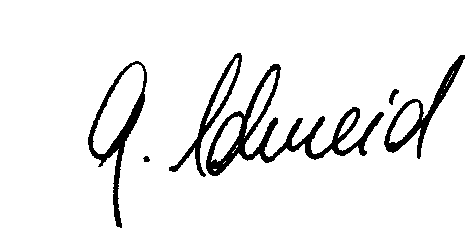 A. Schmeid